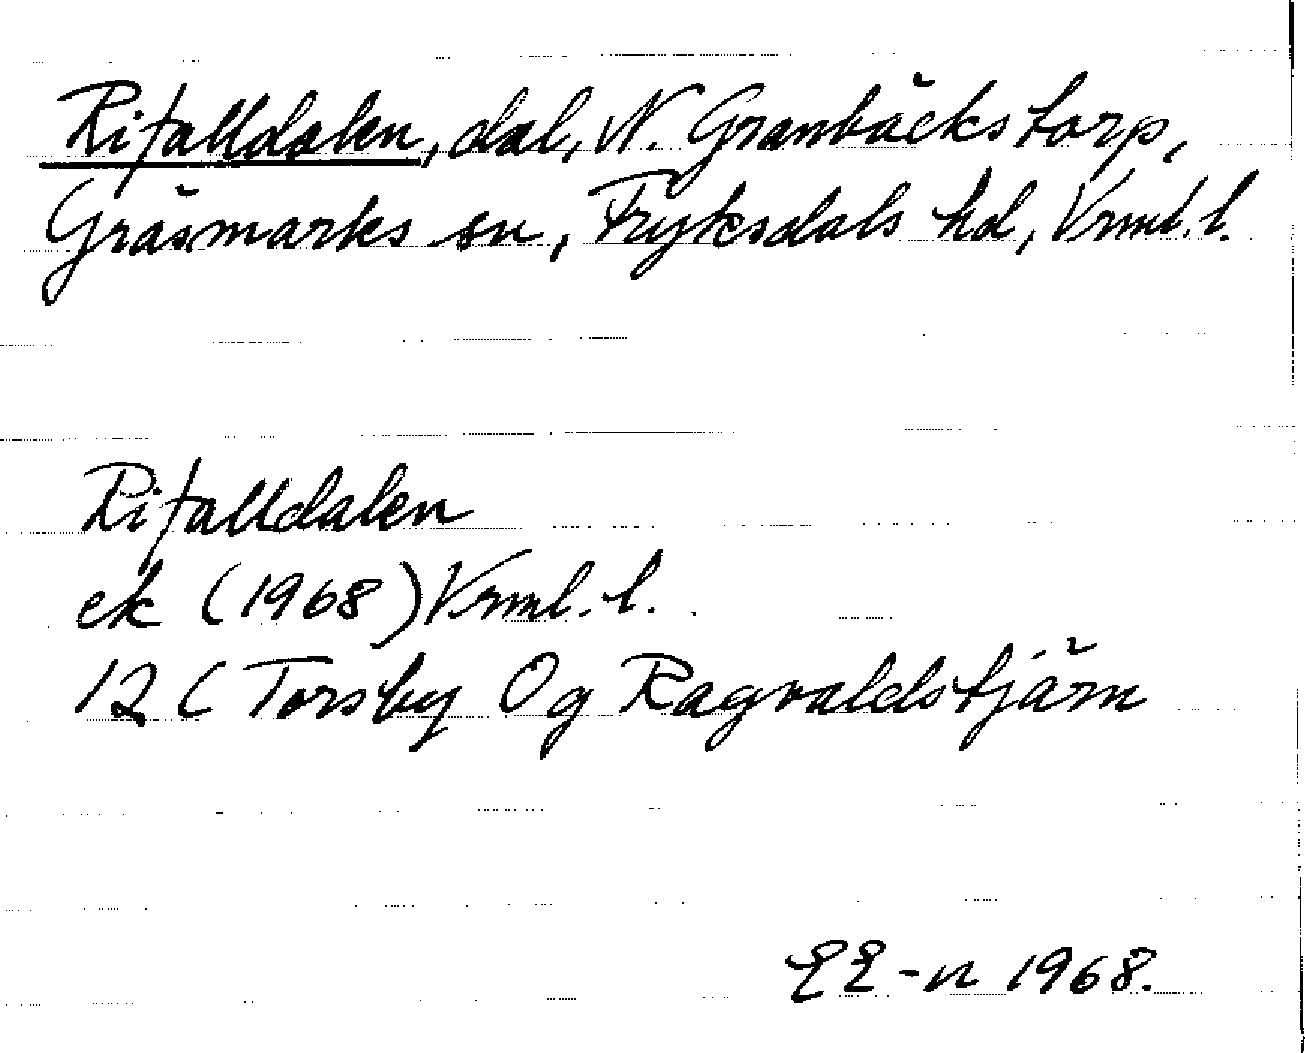 Rifalldalen, dal, N. Granbäckstorp,
Gräsmarks sn, Fryksdals hd, Vrml. l.
Rifalldalen
ek (1968) Vrml. l.
12 C Torsby Og Ragvaldstjärn
EE-n 1968.